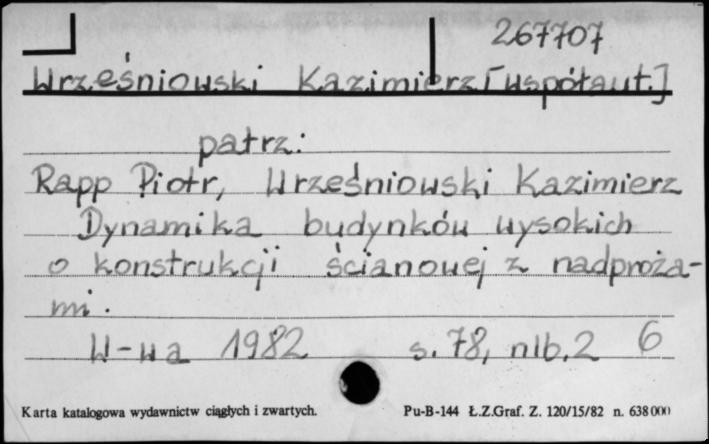 267707
Wrześniowski Kazimierz [współaut.]
patrz:
Rapp Piotr, Wrześniowski Kazimierz
Dynamika budynków wysokich
o konstrukcji ścianowej z nadproża-
mi.
W-wa 1982 s. 78, nlb. 2 6
Karta katalogowa wydawnictw ciągłych i zwartych. Pu-B-144 Ł.Z.Graf. Z. 120/15/82 n. 638000